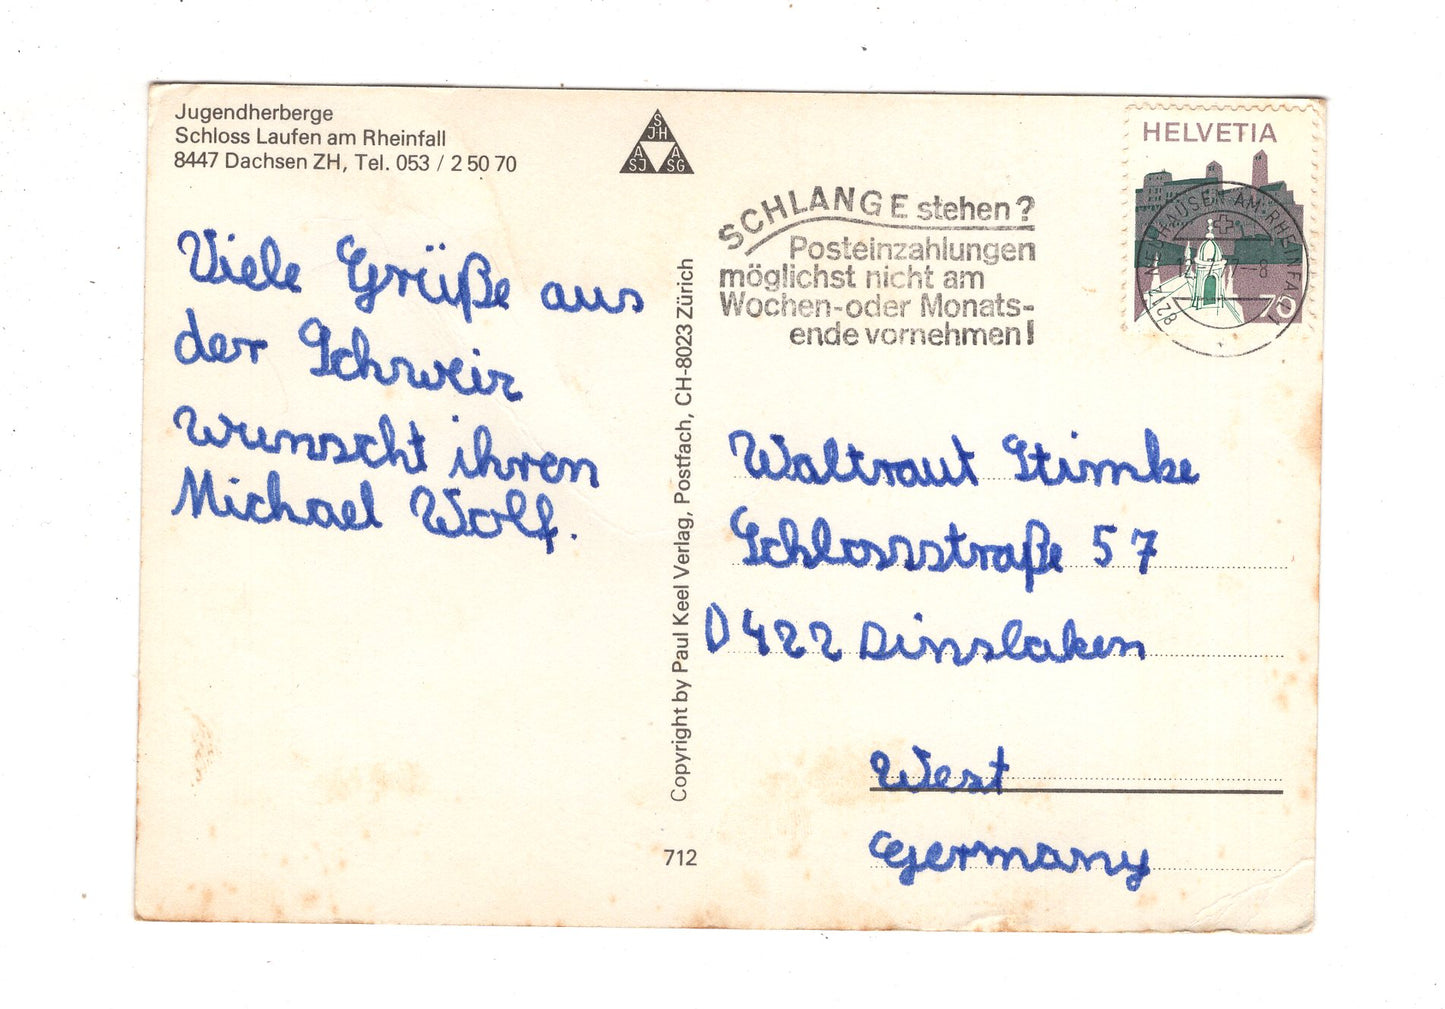 Jugendherberge
Schloss Laufen am Rheinfall
8447 Dachsen ZH, Tel. 053 / 2 50 70
S
JH
A A
SJ SG
HELVETIA
70
8212 NEUHAUSEN AM RHEINFALL
SCHLANGE stehen?
Posteinzahlungen
möglichst nicht am
Wochen-oder Monats-
ende vornehmen!
Viele Grüße aus
der Schweiz
wunscht ihren
Michael Wolf.
Copyright by Paul Keel Verlag, Postfach, CH-8023 Zürich
712
Waltraut Stimke
Schlossstraße 57
D 422 Dinslaken
West
Germany